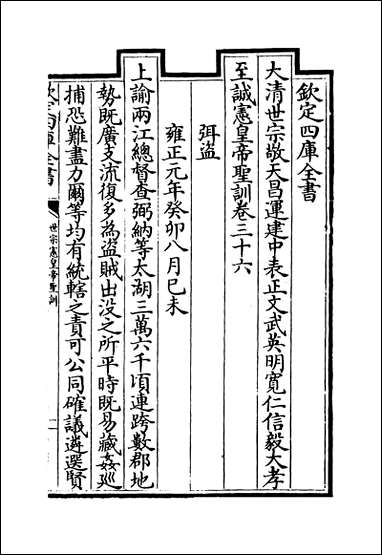 欽定四庫全書
大清世宗敬天昌運建中表正文武英明寛仁信毅大孝
至誠憲皇帝聖訓卷三十六
弭盗
雍正元年癸卯八月己未
上諭兩江總督查弼納等太湖三萬六千頃連跨數郡地
勢既廣支流復多為盗賊出没之所平時既易藏姦廵
捕恐難盡力爾等均有統轄之責可公同確議遴選賢
欽定四庫全書
世宗憲皇帝聖訓
一